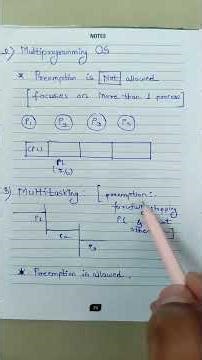 NOTES
2) Multiprogramming OS
* Preemption is Not allowed
[focuses on more than 1 process]
P1 P2 P3 P4
CPU
P1
(I/O)
3) Multitasking: [preemption:-
forcefully stopping
P1
P1
P2
P3
* Preemption is allowed.